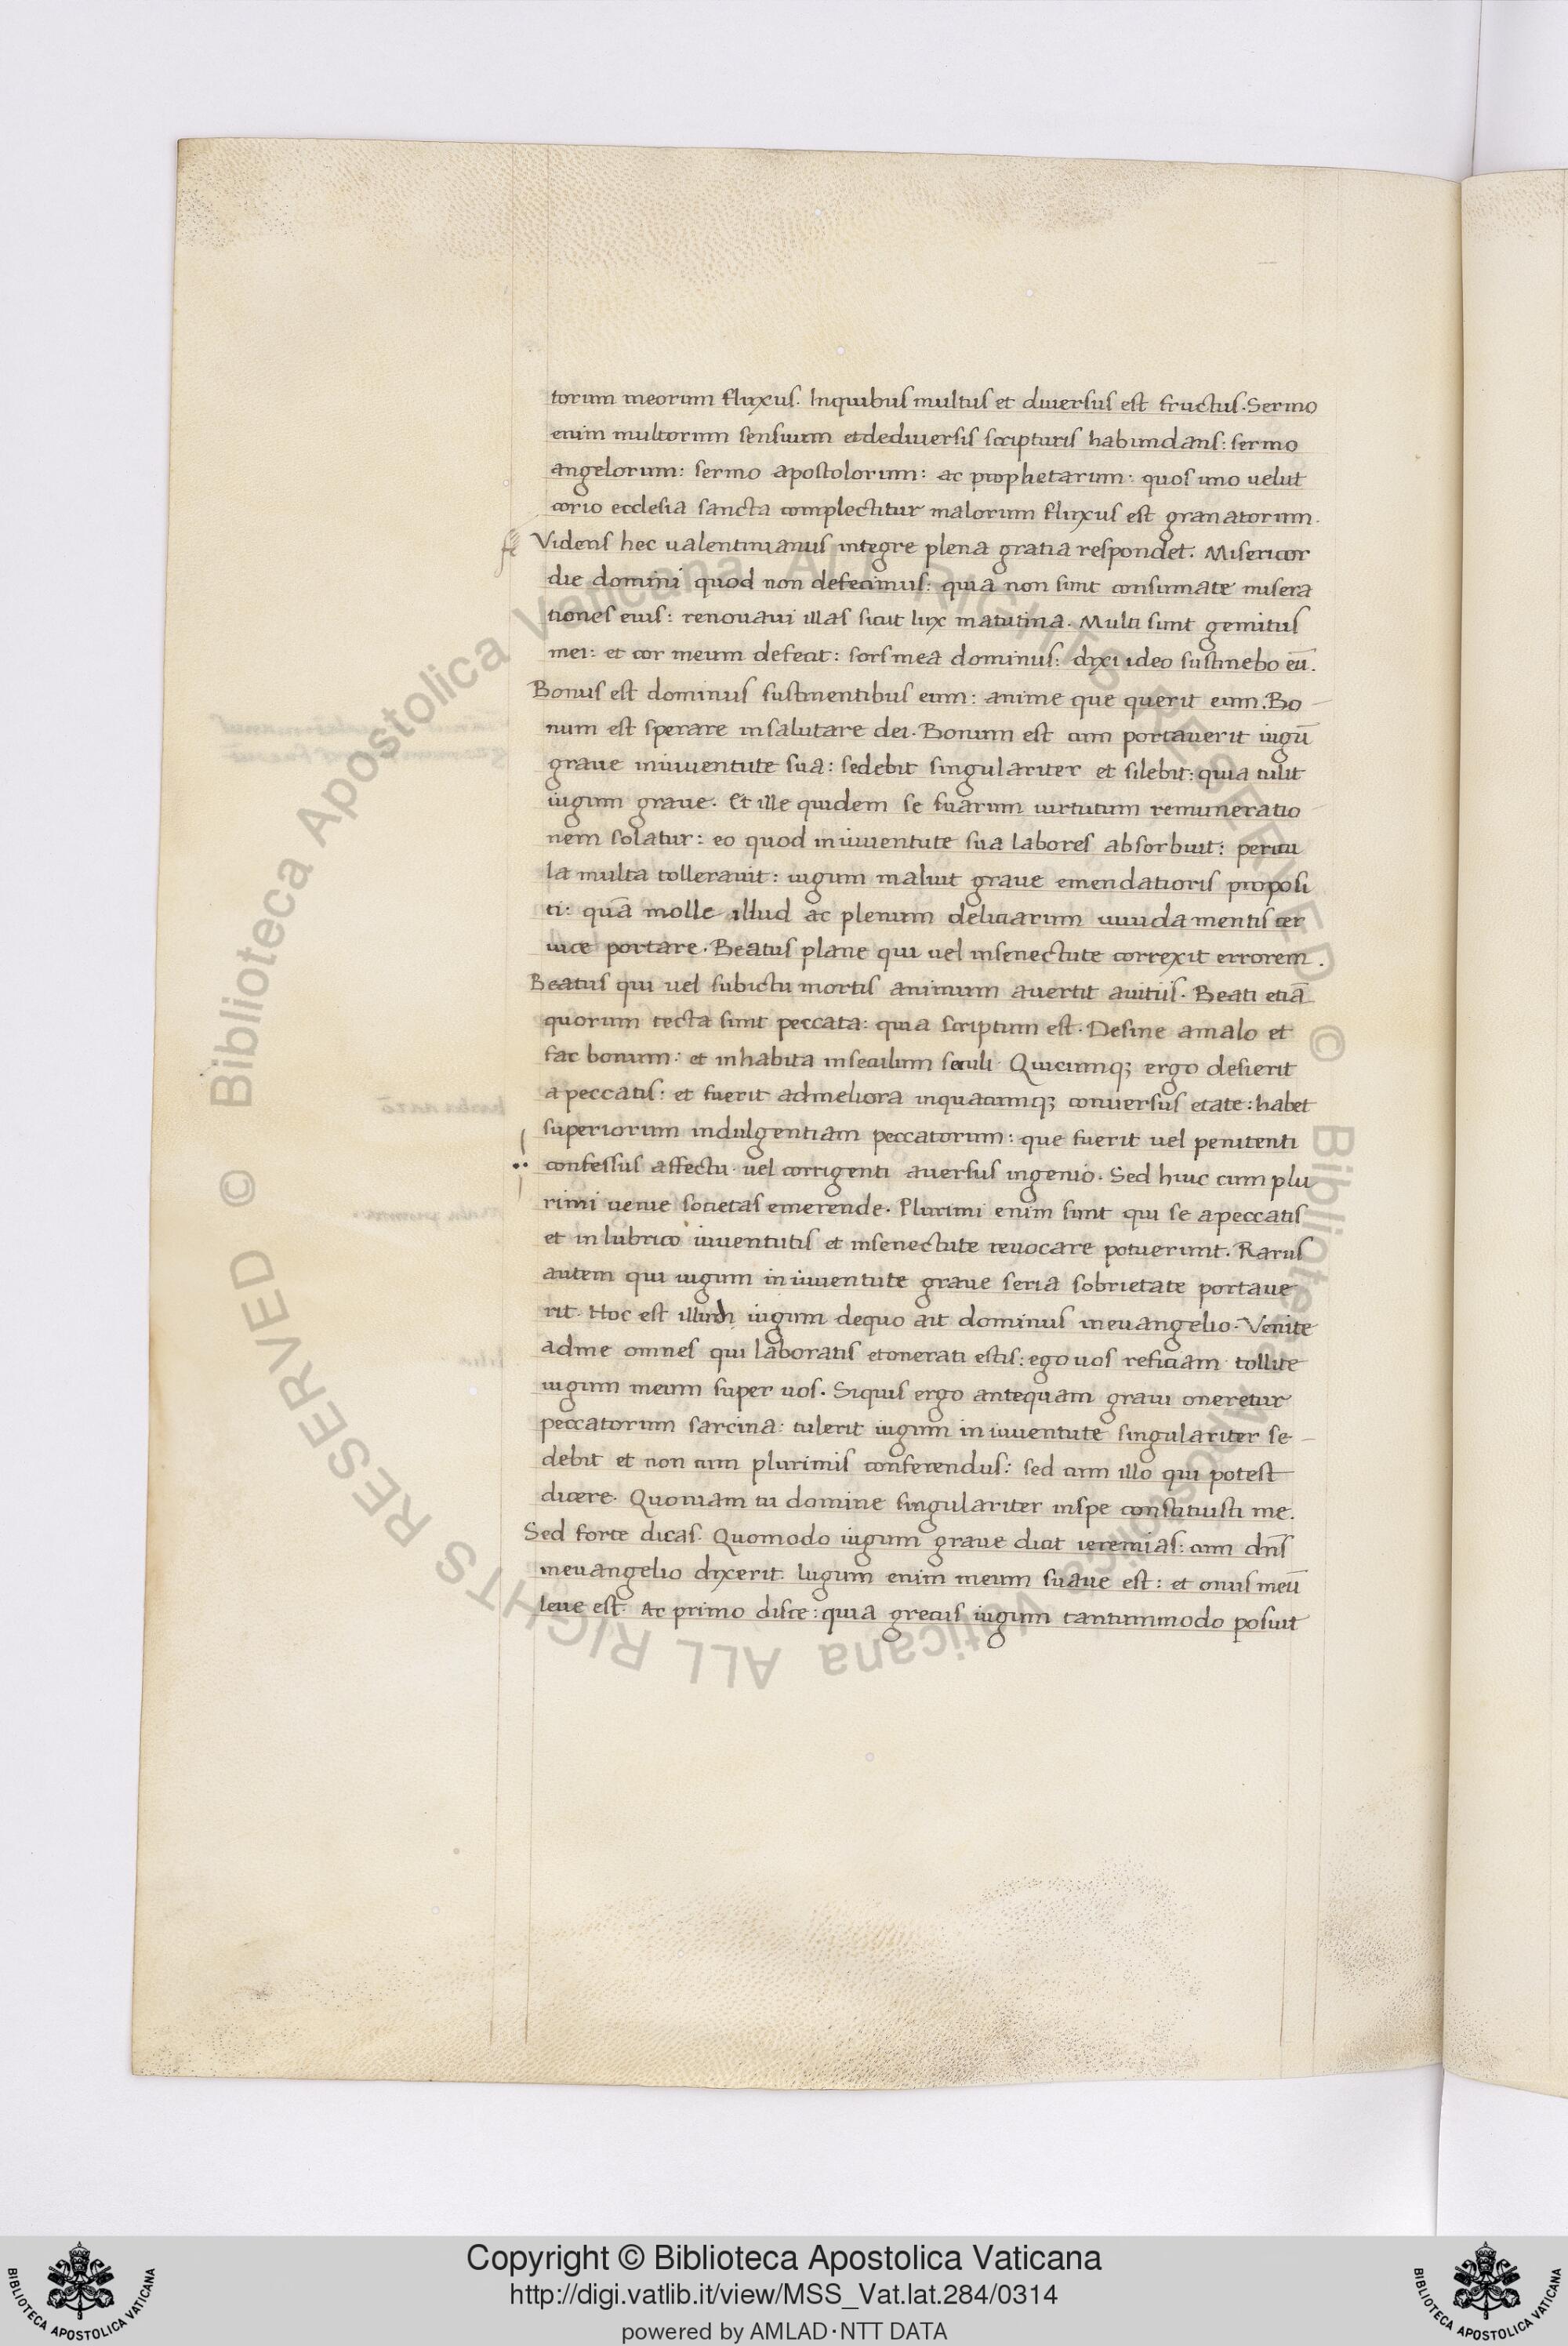 torum meorum fluxus. Inquibus multus et diuersus est fructus. Sermo
enim multorum sensuum et dediuersis scripturis habundans: sermo
angelorum: sermo apostolorum: ac prophetarum: quos uno uelut
corio ecclesia sancta complectitur malorum fluxus est granatorum.
Videns hec ualentinianus integre plena gratia respondet. Misericor
die domini quod non defecimus: quia non sunt consumate misera
tiones eius: renouaui illas sicut lux matutina. Multi sunt gemitus
mei: et cor meum defecit: sors mea dominus: dixi ideo sustinebo eū.
Bonus est dominus sustinentibus eum: anime que querit eum. Bo
num est sperare insalutare dei. Bonum est cum portauerit iugū
graue iniuuentute sua: sedebit singulariter et silebit: quia tulit
iugum graue. Et ille quidem se suarum uirtutum remuneratio
nem solatur: eo quod iniuuentute sua labores absorbuit: pericu
la multa tollerauit: iugum maluit graue emendatioris proposi
ti: quā molle illud ac plenum deliciarum uiuida mentis cer
uice portare. Beatus plane qui uel insenectute correxit errorem.
Beatus qui uel subictu mortis animum auertit auitiis. Beati etiā
quorum tecta sunt peccata: quia scriptum est. Desine amalo et
fac bonum: et inhabita inseculum seculi. Quicumq; ergo desierit
apeccatis: et fuerit admeliora inquacumq; conuersus etate: habet
superiorum indulgentiam peccatorum: que fuerit uel penitenti
confessus affectu uel corrigenti auersus ingenio. Sed huic cum plu
rimi uenie societas emerende. Plurimi enim sunt qui se apeccatis
et in lubrico iuuentutis et insenectute reuocare potuerunt. Rarus
autem qui iugum in iuuentute graue seria sobrietate portaue
rit. Hoc est illud iugum dequo ait dominus ineuangelio. Venite
adme omnes qui laboratis etonerati estis: ego uos reficiam tollite
iugum meum super uos. Siquis ergo antequam graui oneretur
peccatorum sarcina: tulerit iugum in iuuentute singulariter se
debit et non cum plurimis conferendus: sed cum illo qui potest
dicere. Quoniam tu domine singulariter inspe constituisti me.
Sed forte dicas. Quomodo iugum graue dicit ieremias: cum dn̄s
ineuangelio dixerit. Iugum enim meum suaue est: et onus meū
leue est. Ac primo disce: quia grecus iugum tantummodo posuit
© Biblioteca Apostolica Vaticana ALL RIGHTS RESERVED © Biblioteca Apostolica Vaticana ALL RIGHTS RESERVED
BIBLIOTECA APOSTOLICA VATICANA
Copyright © Biblioteca Apostolica Vaticana
http://digi.vatlib.it/view/MSS_Vat.lat.284/0314
powered by AMLAD·NTT DATA
BIBLIOTECA APOSTOLICA VATICANA